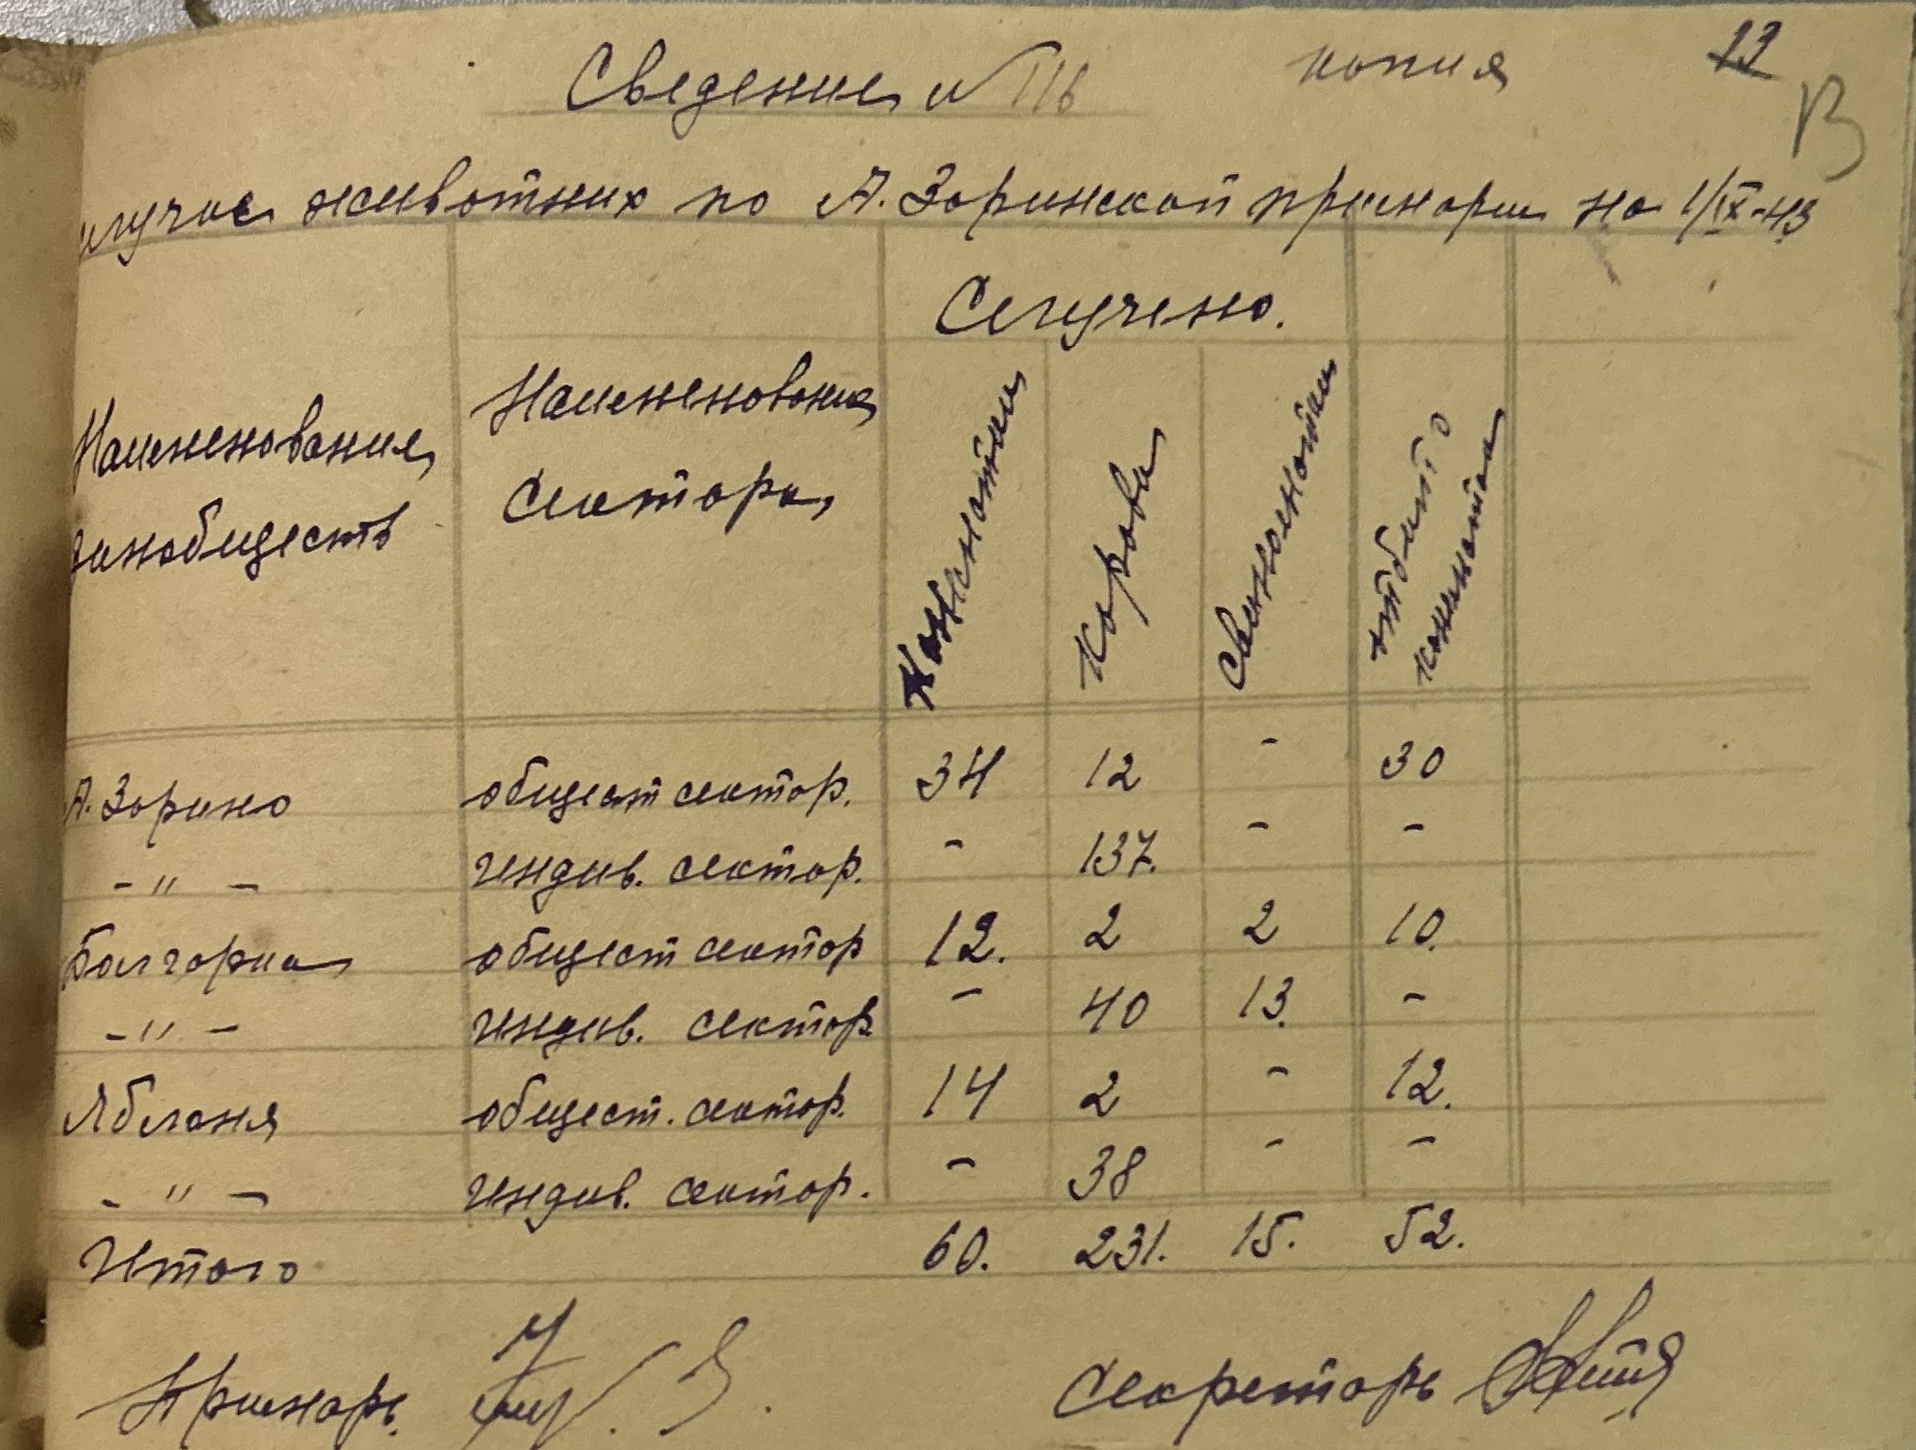 Сведение № 116 копия 13
13
случае животних по А. Зоринской примории на 1/IX-43
Случено.
Наименование земобществ
Наименование сектора
Конематки
Корови
Свиноматки
отбито конематок
А. Зорино общест сектор. 34 12 - 30
- " - индив. сектор. - 137. - -
Болгория общест сектор 12. 2 2 10.
- " - индив. сектор - 40 13. -
Яблоня общест. сектор. 14 2 - 12.
- " - индив. сектор. - 38 - -
Итого 60. 231. 15. 52.
Примарь Секретарь